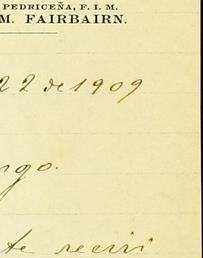 PEDRICEÑA, F. I. M.
M. FAIRBAIRN.
22 de 1909
ngo.
te recivi